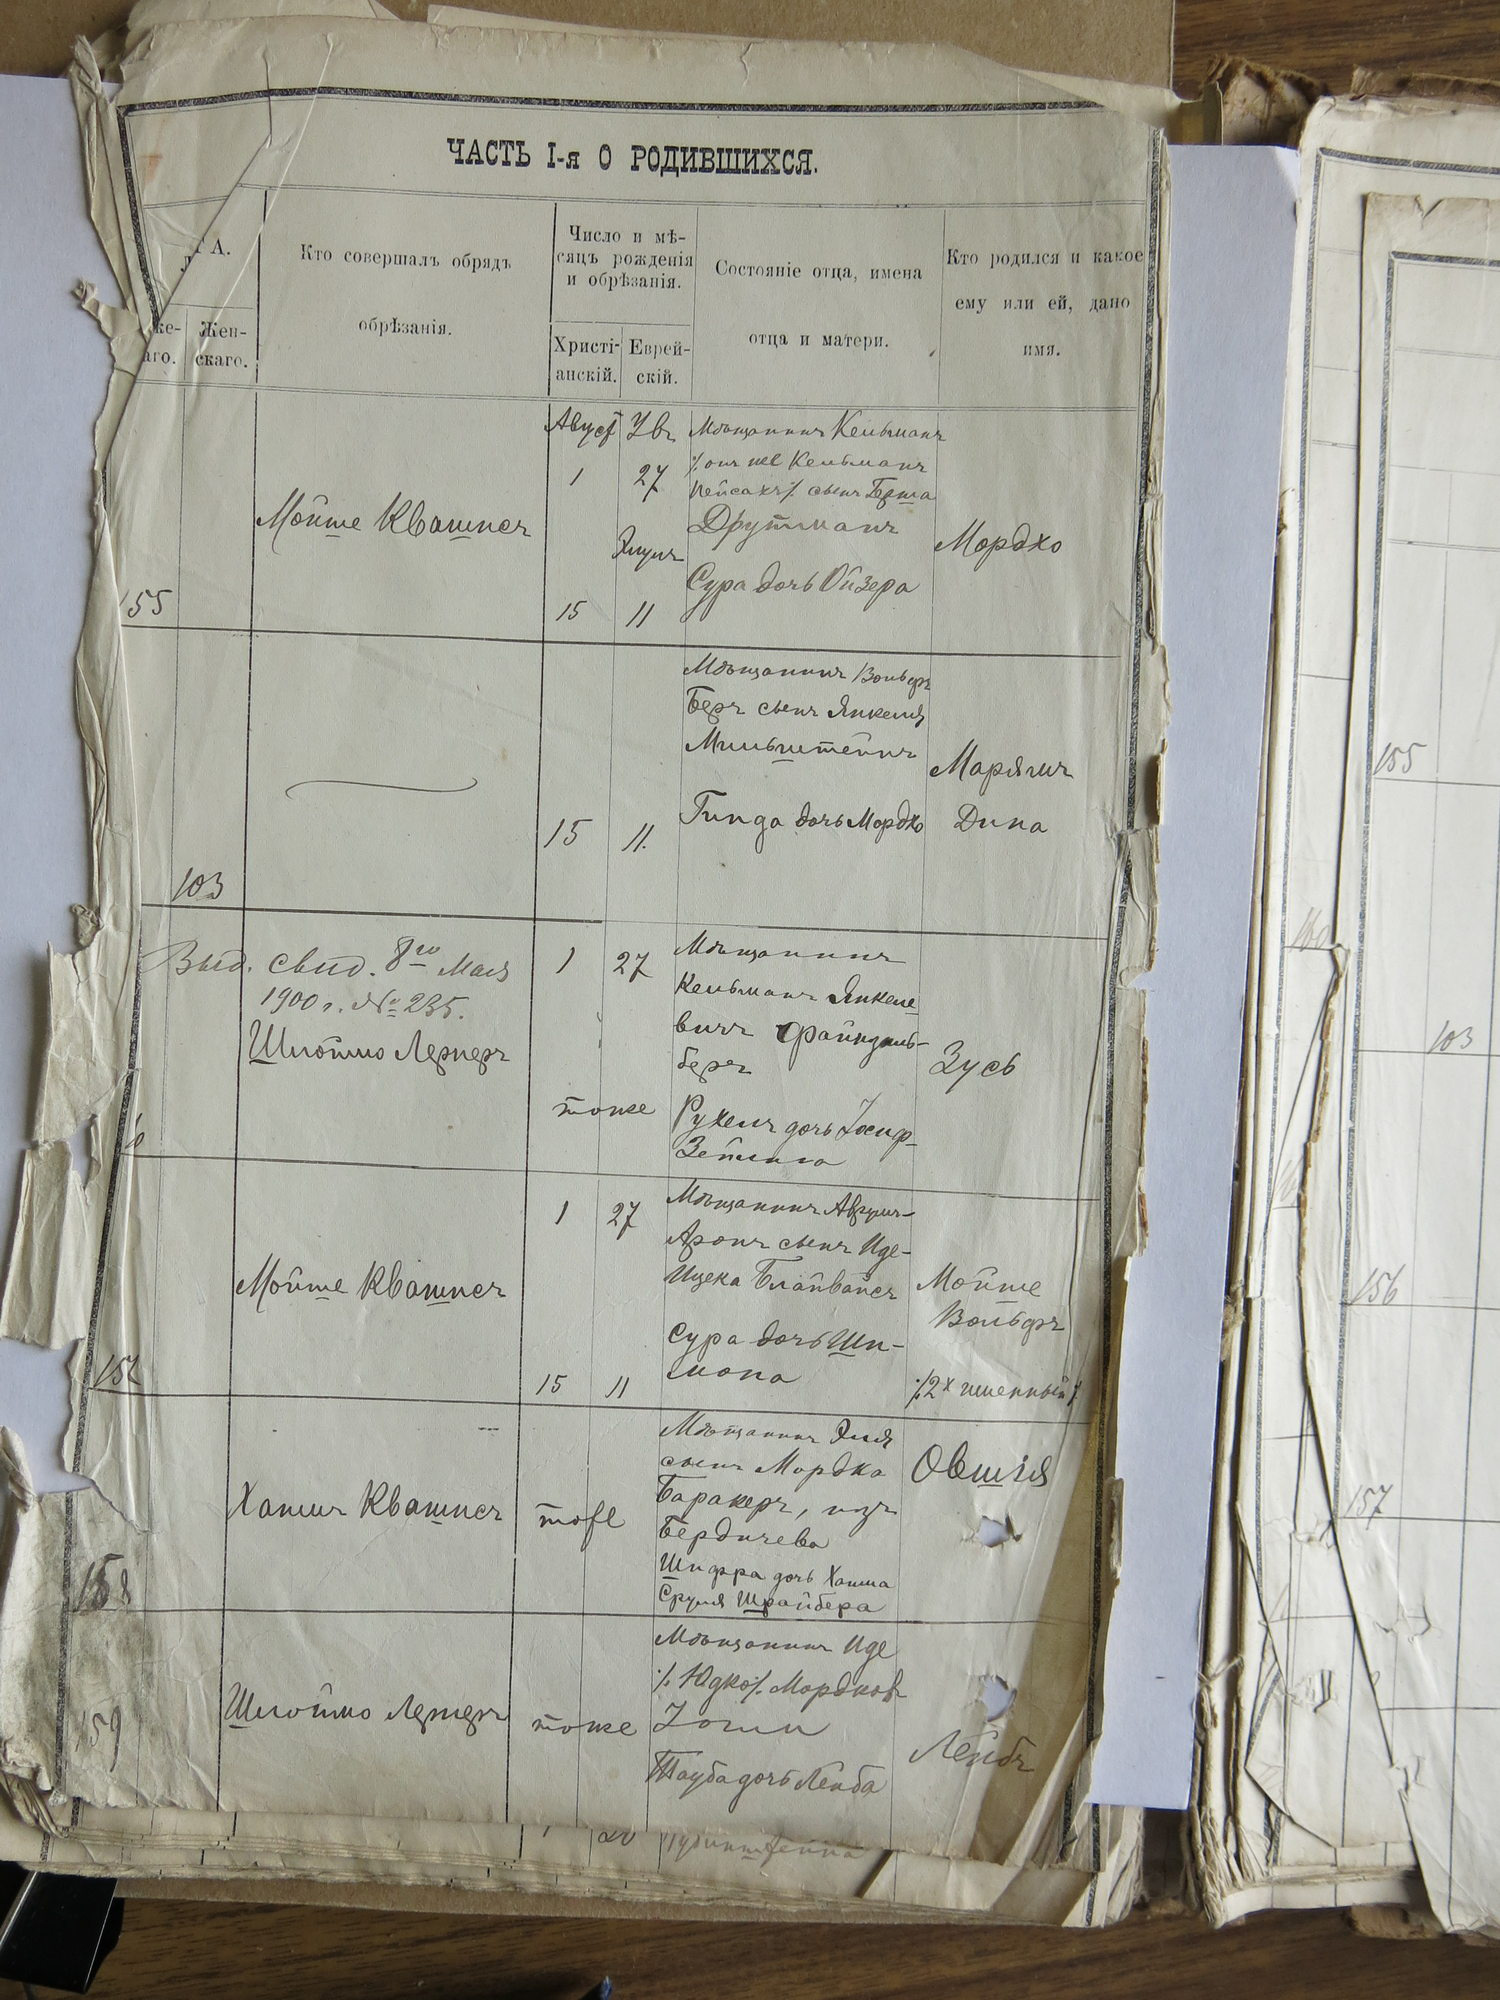 ЧАСТЬ I-я О РОДИВШИХСЯ.
Кто совершалъ обрядъ
обрѣзанія.
Число и мѣ-
сяцъ рожденія
и обрѣзанія.
Христі-
анскій.
Еврей-
скій.
Состояніе отца, имена
отца и матери.
Кто родился и какое
ему или ей, дано
имя.
Жен-
скаго.
155
Мойше Квашнеръ
Август
1
15
27
11
Мѣщанинъ Кельманъ
Кельманъ
Пейсахъ сынъ Берша
Друтманъ
Сура дочь Ойзера
Мордхо
103
15
11.
Мѣщанинъ Вольфъ
Беръ сынъ Янкеля
Мильштейнъ
Гинда дочь Мордхо
Марьямъ
Дина
Выд. свид. 8го Мая
1900 г. № 235.
Шлоймо Лернеръ
1
27
тоже
Мѣщанинъ
Кельманъ Янкеле-
вичъ
беръ
Рухель дочь Іосиф-
Зейлига
Зусь
Мойше Квашнеръ
1
27
15
11
Мѣщанинъ Аврумъ-
Аронъ сынъ Иде-
Ицека Блайвайсъ
Сура дочь Ши-
мона
Мойше
Вольфъ
158
Хаимъ Квашнеръ
тоже
Мѣщанинъ Эля
сынъ Мордка
Баракеръ, изъ
Бердичева
Шифра дочь Хаима
Сруля Шрайбера
Овшія
159
Шлоймо Лернеръ
тоже
Мѣщанинъ Иде
Юдко Мордков
Тауба дочь Лейба
Лейбъ
155
103
156
157